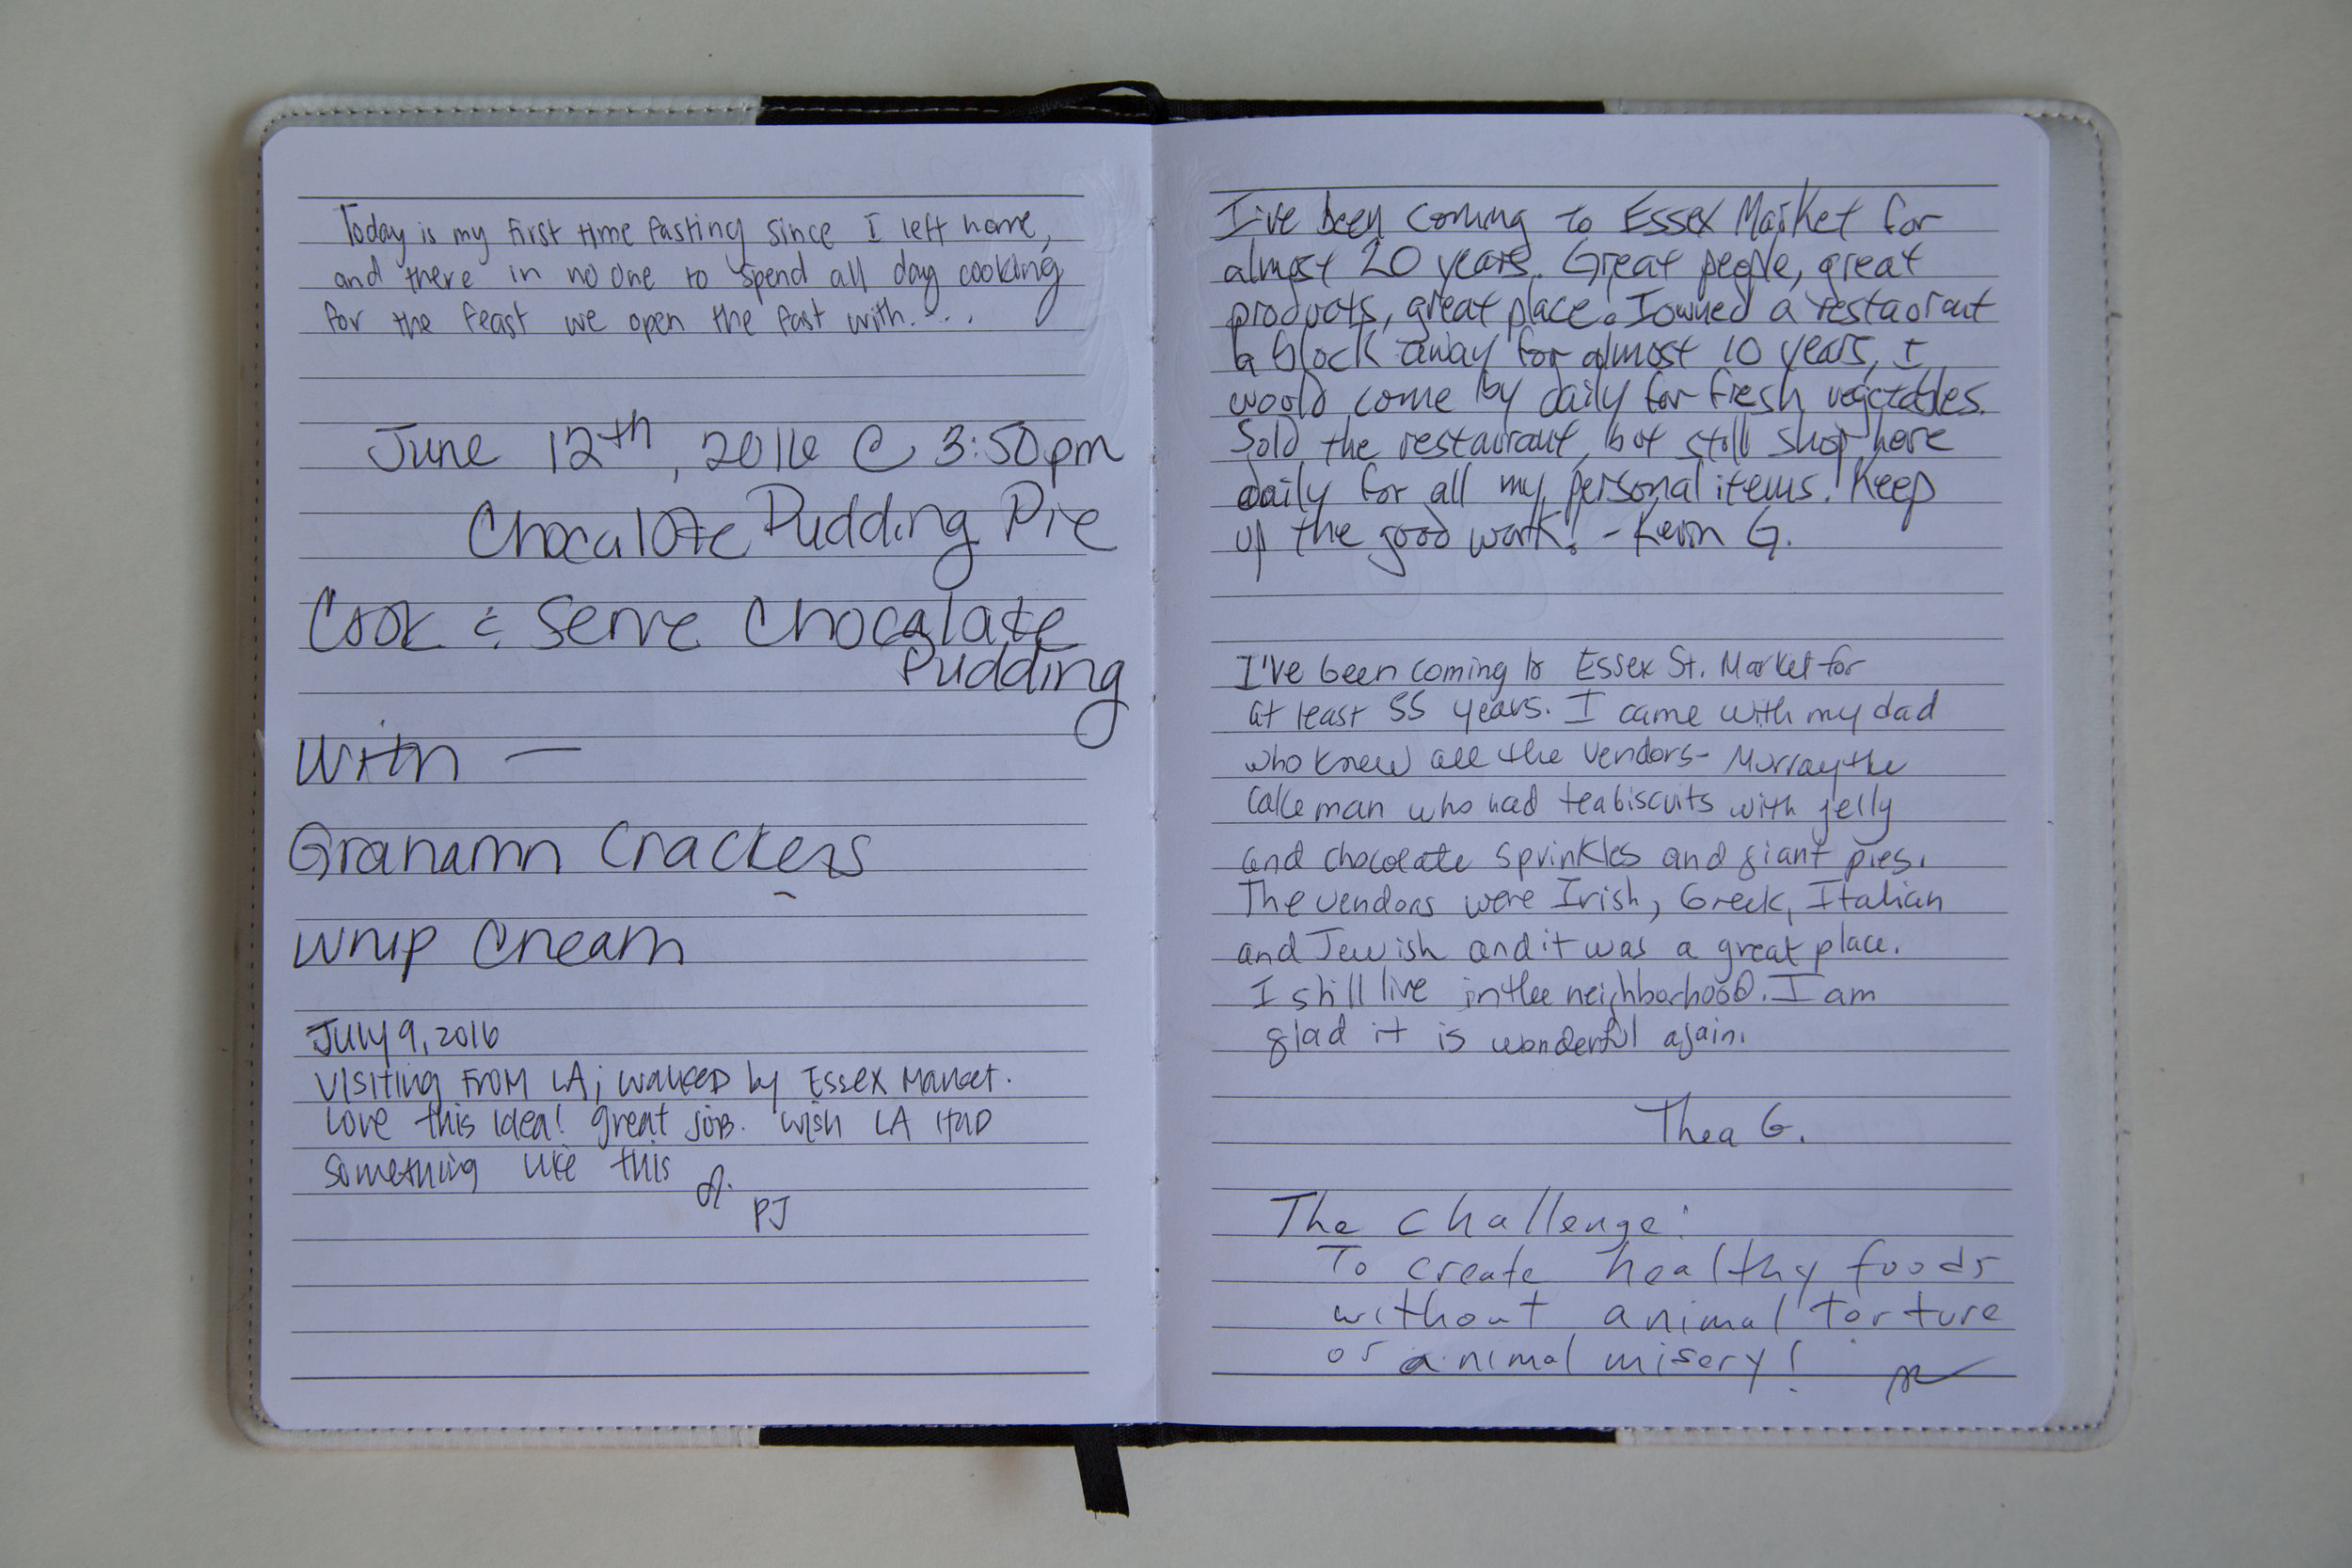 Today is my first time fasting since I left home,
and there in no one to spend all day cooking
for the feast we open the fast with....
June 12th, 2016 @ 3:50pm
Chocalate Pudding Pie
Cook & Serve Chocalate
Pudding
With —
Grahamn Crackers
Whip Cream
July 9, 2016
Visiting from LA; walked by Essex Market.
Love this idea! Great job. Wish LA had
something like this
PJ
I've been coming to Essex Market for
almost 20 years. Great people, great
products, great place. I owned a restaurant
a block away for almost 10 years, I
would come by daily for fresh vegetables.
Sold the restaurant, but still shop here
daily for all my personal items. Keep
up the good work! - Kevin G.
I've been coming to Essex St. Market for
at least 55 years. I came with my dad
who knew all the vendors - Murray the
Cake man who had teabiscuits with jelly
and chocolate sprinkles and giant pies.
The vendors were Irish, Greek, Italian
and Jewish and it was a great place.
I still live in the neighborhood. I am
glad it is wonderful again.
Thea G.
The challenge:
To create healthy foods
without animal torture
or animal misery!